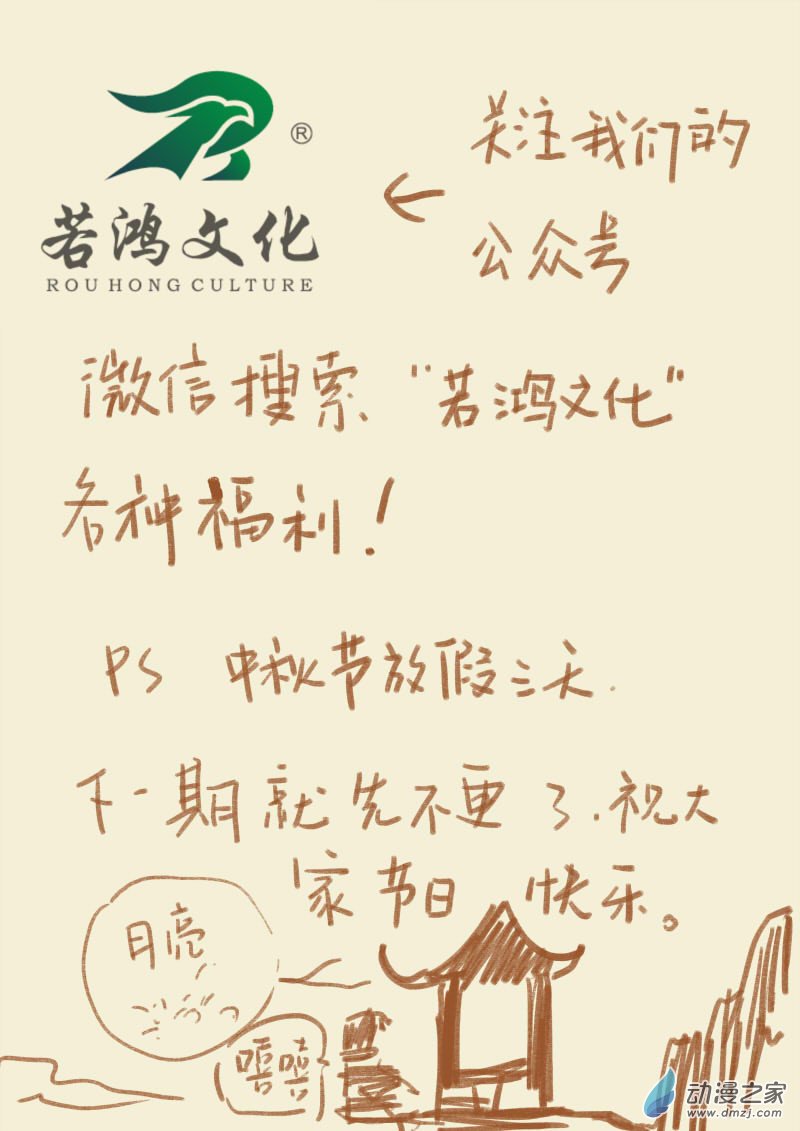 ®
若鸿文化
ROU HONG CULTURE
关注我们的
公众号
微信搜索“若鸿文化”
各种福利！
PS 中秋节放假三天.
下一期就先不更了.祝大
家节日快乐。
月亮
嘻嘻
动漫之家
www.dmzj.com